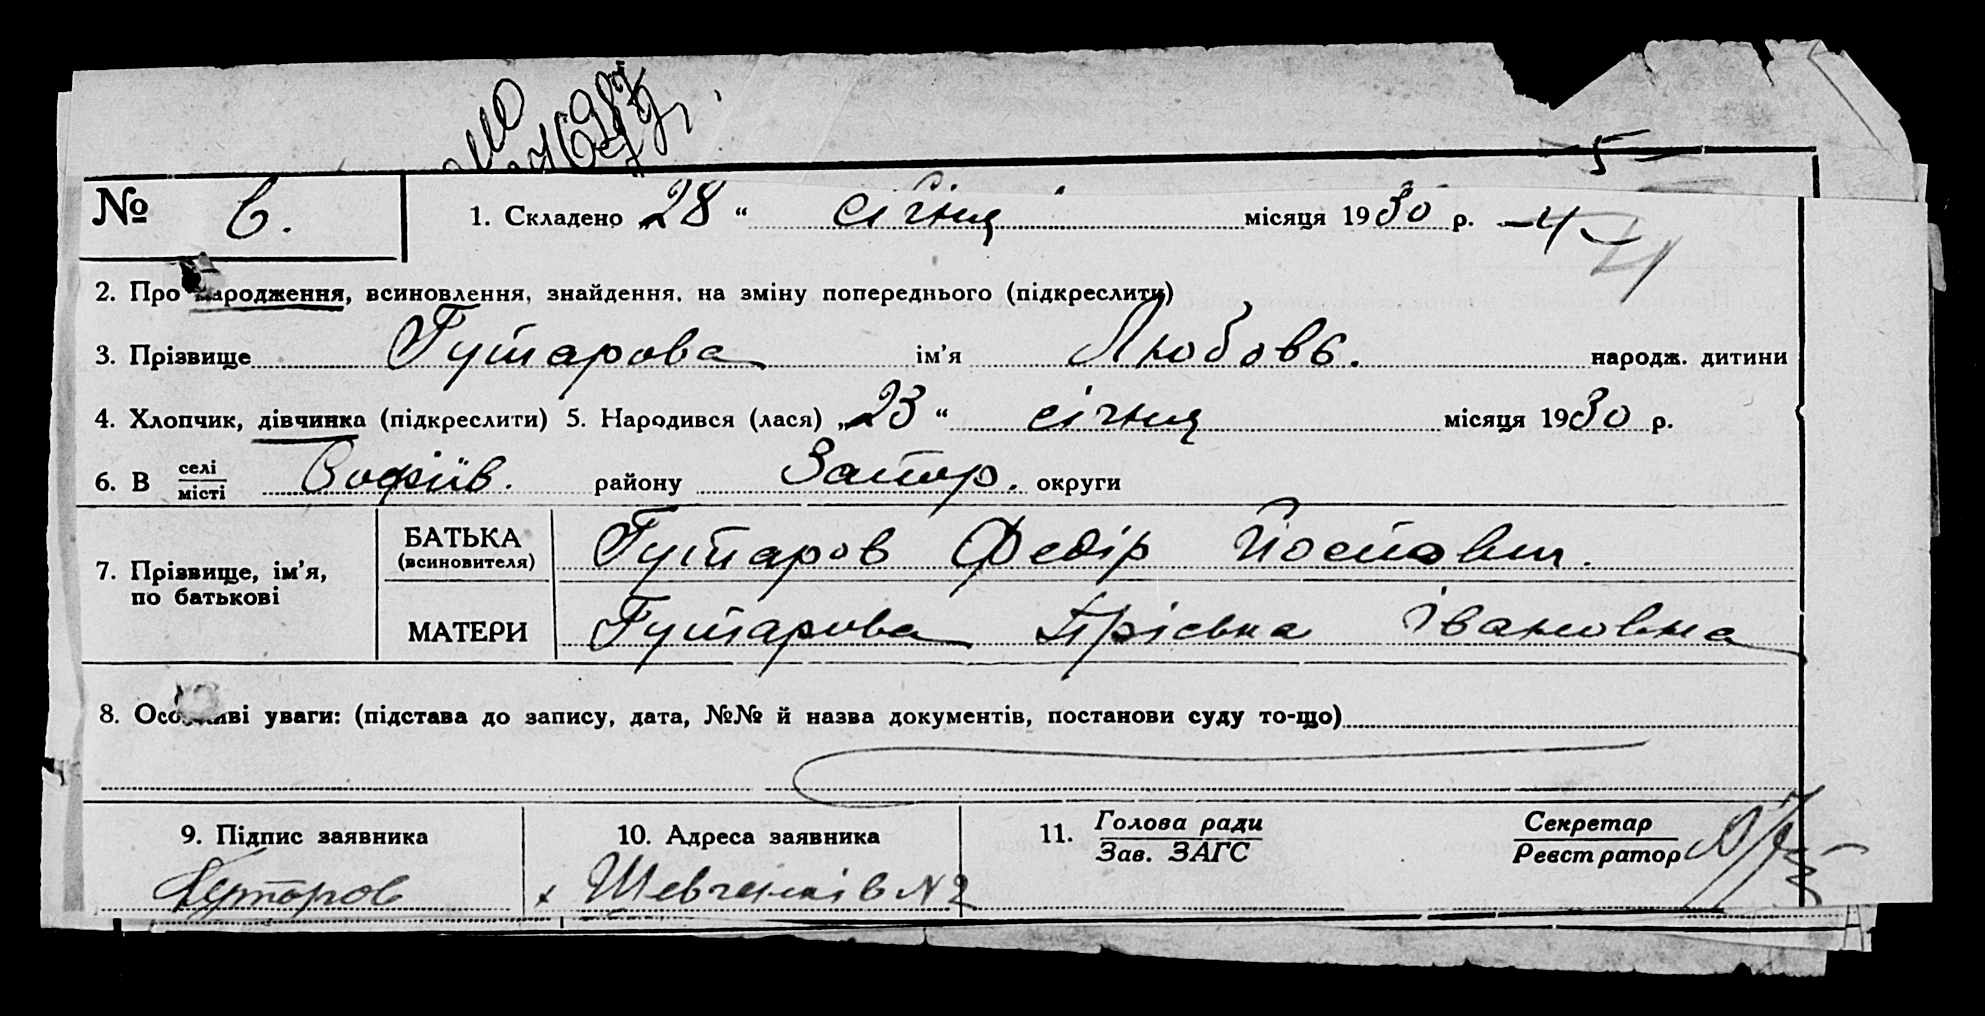 5
№ 6. 1. Складено „28“ січня місяця 1930 р. -4- 4
2. Про народження, всиновлення, знайдення, на зміну попереднього (підкреслити)
3. Прізвище Гутарова ім’я Любовь. народж. дитини
4. Хлопчик, дівчинка (підкреслити) 5. Народився (лася) „23“ січня місяця 1930 р.
6. В селі/місті Софіїв. району Запор. округи
7. Прізвище, ім’я, по батькові
БАТЬКА (всиновителя) Гутаров Федір
МАТЕРИ Гутарова Івановна
8. Особливі уваги: (підстава до запису, дата, №№ й назва документів, постанови суду то-що)
9. Підпис заявника 10. Адреса заявника 11. Голова ради/Зав. ЗАГС Секретар/Реєстратор
Гутаров х Шевченків N 2